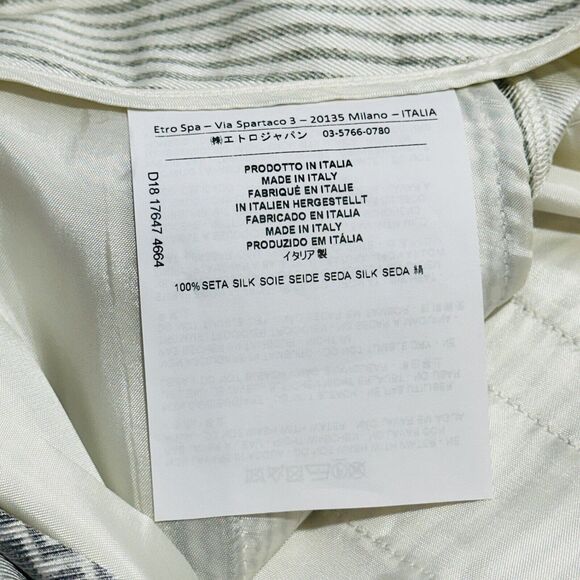 Etro Spa – Via Spartaco 3 – 20135 Milano – ITALIA
㈱エトロジャパン 03-5766-0780
PRODOTTO IN ITALIA
MADE IN ITALY
FABRIQUÉ EN ITALIE
IN ITALIEN HERGESTELLT
FABRICADO EN ITALIA
MADE IN ITALY
PRODUZIDO EM ITÁLIA
イタリア製
100% SETA SILK SOIE SEIDE SEDA SILK SEDA 絹
D18 17647 4664